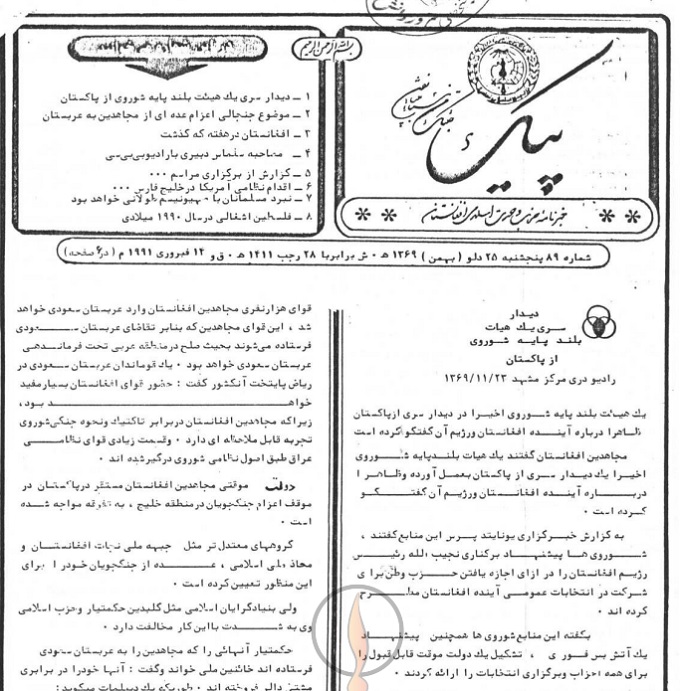 بسم الله الرحمن الرحیم
۱ ــ دیدار سری یك هیئت بلند پایه شوروی از پاکستان
۲ ــ موضوع جنجالی اعزام عده ای از مجاهدین به عربستان
۳ ــ افغانستان در هفته که گذشت
۴ ــ مصاحبه سلماس دبیری با رادیو بی بی سی
۵ ــ گزارش از برگزاری مراسم ۰۰۰
۶ ــ اقدام نظامی آمریکا در خلیج فارس ۰۰۰
۷ ــ نبرد مسلمانان با صهیونیزم طولانی خواهد بود
۸ ــ فلسطین اشغالی در سال ۱۹۹۰ میلادی
پیک
خبرنامه حزب وحدت اسلامی افغانستان
شماره ۸۹ پنجشنبه ۲۵ دلو ( بهمن ) ۱۳۶۹ هـ ۰ ش برابر با ۲۸ رجب ۱۴۱۱ هـ ۰ ق و ۱۴ فبروری ۱۹۹۱ م ( در ۶ صفحه )
دیدار
سری یك هیات
بلند پایه شوروی
از پاکستان
رادیو دری مرکز مشهد ۱۳۶۹/۱۱/۲۳
یك هیئت بلند پایه شوروی اخیرا در دیدار سری از پاکستان
ظاهرا درباره آینده افغانستان و رژیم آن گفتگو کرده است
مجاهدین افغانستان گفتند یك هیات بلند پایه شوروی
اخیرا یك دیدار سری از پاکستان بعمل آورده و ظاهرا
درباره آینده افغانستان و رژیم آن گفتگو
کرده است ۰
به گزارش خبرگزاری یونایتد پرس این منابع گفتند ،
شوروی ها پیشنهاد برکناری نجیب الله رئیس
رژیم افغانستان را در ازای اجازه یافتن حزب وطن برای
شرکت در انتخابات عمومی آینده افغانستان مطرح
کرده اند ۰
بگفته این منابع شوروی ها همچنین پیشنهاد
یك آتش بس فوری ، تشکیل یك دولت موقت قابل قبول را
برای همه احزاب و برگزاری انتخابات را ارائه کردند ۰
قوای هزار نفری مجاهدین افغانستان وارد عربستان سعودی خواهد
شد ، این قوای مجاهدین که بنابر تقاضای عربستان سعودی
فرستاده می‌شوند بحیث صلح در منطقه عربی تحت فرماندهی
عربستان سعودی خواهد بود ۰ یك قوماندان عربستان سعودی در
ریاض پایتخت آنکشور گفت : حضور قوای افغانستان بسیار مفید
خواهد بود ،
زیرا که مجاهدین افغانستان در برابر تاکتیك و نحوه جنگی شوروی
تجربه قابل ملاحظه ای دارد ۰ و قسمت زیادی قوای نظامی
عراق طبق اصول نظامی شوروی درگیر شده اند ۰
دولت موقتی مجاهدین افغانستان مستقر در پاکستان در
موقف اعزام جنگجویان در منطقه خلیج ، به تفرقه مواجه شده
است ۰
گروههای معتدل تر مثل جبهه ملی نجات افغانستان و
محاذ ملی اسلامی ، عده از جنگجویان خود را برای
این منظور تعیین کرده است ۰
ولی بنیادگرایان اسلامی مثل گلبدین حکمتیار و حزب اسلامی
وی به شدت با این کار مخالفت دارد ۰
حکمتیار آنهائی را که مجاهدین را به عربستان سعودی
فرستاده اند خائنین ملی خواند و گفت : آنها خود را در برابری